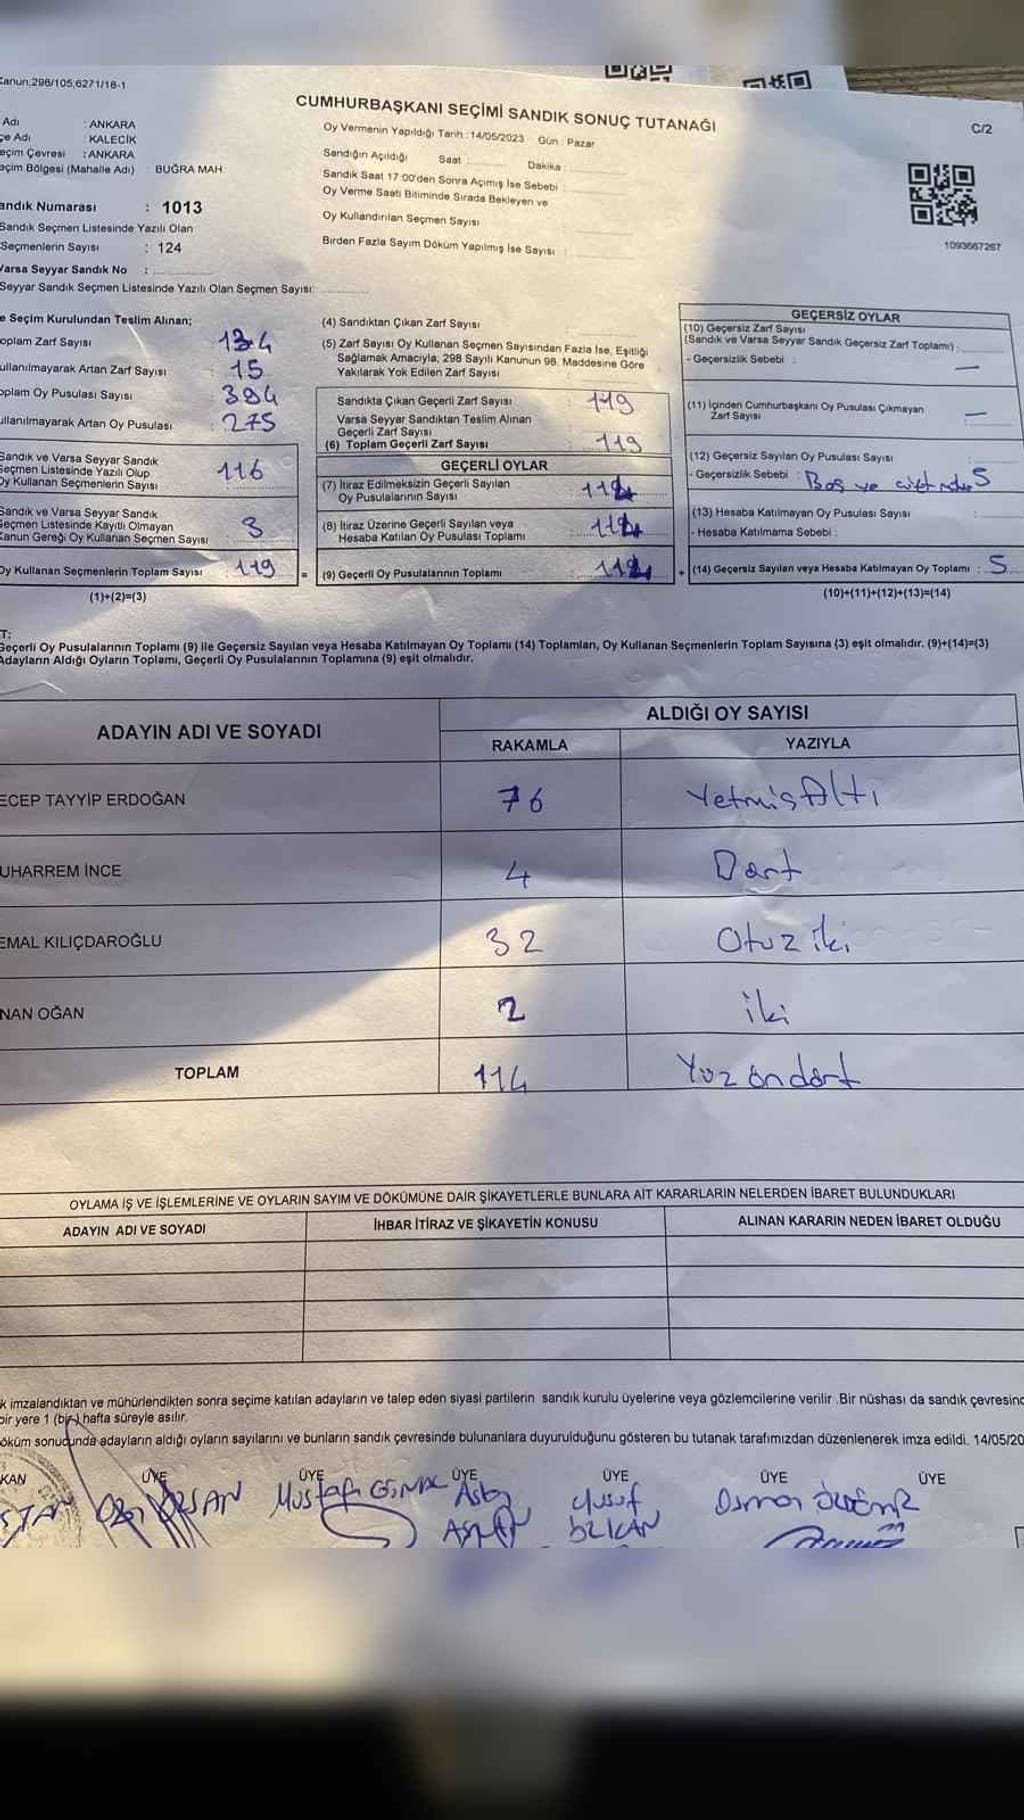 Kanun:298/105;6271/18-1
CUMHURBAŞKANI SEÇİMİ SANDIK SONUÇ TUTANAĞI
C/2
Adı : ANKARA
çe Adı : KALECİK
eçim Çevresi : ANKARA
eçim Bölgesi (Mahalle Adı) : BUĞRA MAH
andık Numarası : 1013
Sandık Seçmen Listesinde Yazılı Olan
Seçmenlerin Sayısı : 124
Varsa Seyyar Sandık No :
Seyyar Sandık Seçmen Listesinde Yazılı Olan Seçmen Sayısı:
Oy Vermenin Yapıldığı Tarih : 14/05/2023 Gün : Pazar
Sandığın Açıldığı Saat : Dakika :
Sandık Saat 17:00'den Sonra Açımış İse Sebebi :
Oy Verme Saati Bitiminde Sırada Bekleyen ve
Oy Kullandırılan Seçmen Sayısı :
Birden Fazla Sayım Döküm Yapılmış İse Sayısı :
1093667267
e Seçim Kurulundan Teslim Alınan;
oplam Zarf Sayısı : 134
ullanılmayarak Artan Zarf Sayısı : 15
oplam Oy Pusulası Sayısı : 394
ullanılmayarak Artan Oy Pusulası : 275
Sandık ve Varsa Seyyar Sandık
Seçmen Listesinde Yazılı Olup
Oy Kullanan Seçmenlerin Sayısı : 116
Sandık ve Varsa Seyyar Sandık
Seçmen Listesinde Kayıtlı Olmayan
Kanun Gereği Oy Kullanan Seçmen Sayısı : 3
Oy Kullanan Seçmenlerin Toplam Sayısı : 119
(1)+(2)=(3)
(4) Sandıktan Çıkan Zarf Sayısı
(5) Zarf Sayısı Oy Kullanan Seçmen Sayısından Fazla İse, Eşitliği
Sağlamak Amacıyla, 298 Sayılı Kanunun 98. Maddesine Göre
Yakılarak Yok Edilen Zarf Sayısı :
Sandıkta Çıkan Geçerli Zarf Sayısı : 119
Varsa Seyyar Sandıktan Teslim Alınan
Geçerli Zarf Sayısı
(6) Toplam Geçerli Zarf Sayısı : 119
GEÇERLİ OYLAR
(7) İtiraz Edilmeksizin Geçerli Sayılan
Oy Pusulalarının Sayısı : 114
(8) İtiraz Üzerine Geçerli Sayılan veya
Hesaba Katılan Oy Pusulası Toplamı : 114
= (9) Geçerli Oy Pusulalarının Toplamı : 114
GEÇERSİZ OYLAR
(10) Geçersiz Zarf Sayısı
(Sandık ve Varsa Seyyar Sandık Geçersiz Zarf Toplamı) :
- Geçersizlik Sebebi : —
(11) İçinden Cumhurbaşkanı Oy Pusulası Çıkmayan
Zarf Sayısı : —
(12) Geçersiz Sayılan Oy Pusulası Sayısı :
- Geçersizlik Sebebi : Boş ve 5
(13) Hesaba Katılmayan Oy Pusulası Sayısı :
- Hesaba Katılmama Sebebi :
+ (14) Geçersiz Sayılan veya Hesaba Katılmayan Oy Toplamı : 5
(10)+(11)+(12)+(13)=(14)
T:
Geçerli Oy Pusulalarının Toplamı (9) ile Geçersiz Sayılan veya Hesaba Katılmayan Oy Toplamı (14) Toplamları, Oy Kullanan Seçmenlerin Toplam Sayısına (3) eşit olmalıdır. (9)+(14)=(3)
Adayların Aldığı Oyların Toplamı, Geçerli Oy Pusulalarının Toplamına (9) eşit olmalıdır.
ADAYIN ADI VE SOYADI ALDIĞI OY SAYISI
RAKAMLA YAZIYLA
ECEP TAYYİP ERDOĞAN 76 YetmişAltı
UHARREM İNCE 4 Dört
EMAL KILIÇDAROĞLU 32 Otuz iki
NAN OĞAN 2 iki
TOPLAM 114 Yüz ondört
OYLAMA İŞ VE İŞLEMLERİNE VE OYLARIN SAYIM VE DÖKÜMÜNE DAİR ŞİKAYETLERLE BUNLARA AİT KARARLARIN NELERDEN İBARET BULUNDUKLARI
ADAYIN ADI VE SOYADI İHBAR İTİRAZ VE ŞİKAYETİN KONUSU ALINAN KARARIN NEDEN İBARET OLDUĞU
k imzalandıktan ve mühürlendikten sonra seçime katılan adayların ve talep eden siyasi partilerin sandık kurulu üyelerine veya gözlemcilerine verilir .Bir nüshası da sandık çevresinde
bir yere 1 (bir) hafta süreyle asılır.
öküm sonucunda adayların aldığı oyların sayılarını ve bunların sandık çevresinde bulunanlara duyurulduğunu gösteren bu tutanak tarafımızdan düzenlenerek imza edildi. 14/05/20
KAN ÜYE ÜYE ÜYE ÜYE ÜYE ÜYE
Mustafa Yusuf Osman
ASLAN ÖZKAN